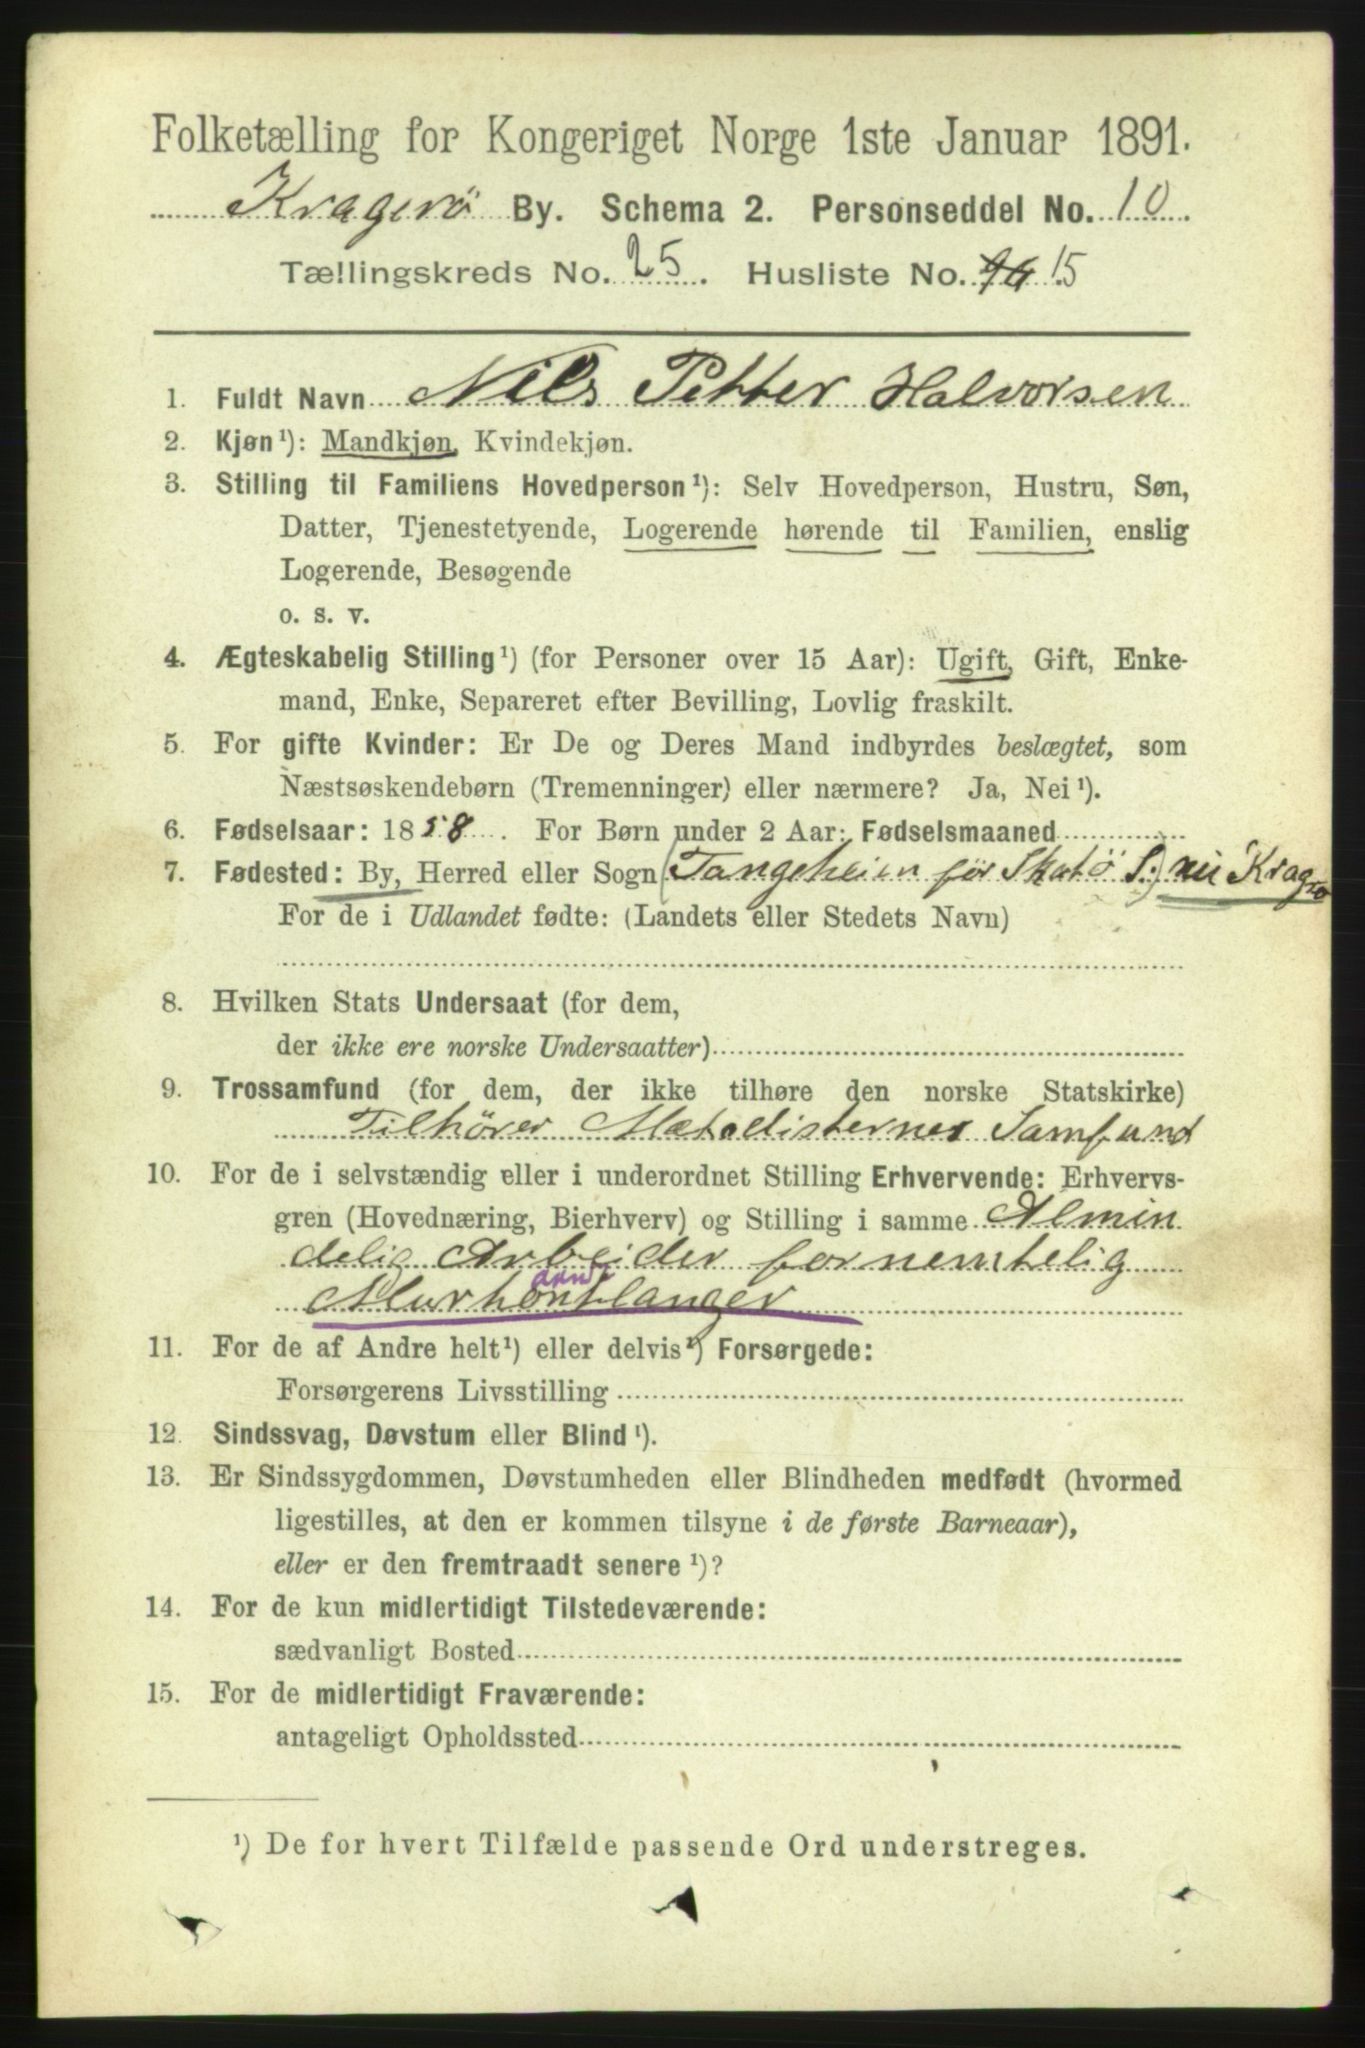 Folketælling for Kongeriget Norge 1ste Januar 1891.
Kragerö By. Schema 2. Personseddel No. 10.
Tællingskreds No. 25. Husliste No. 14 15
1. Fuldt Navn Nils Petter Halvorsen
2. Kjøn¹): Mandkjøn, Kvindekjøn.
3. Stilling til Familiens Hovedperson¹): Selv Hovedperson, Hustru, Søn,
Datter, Tjenestetyende, Logerende hørende til Familien, enslig
Logerende, Besøgende
o. s. v.
4. Ægteskabelig Stilling¹) (for Personer over 15 Aar): Ugift, Gift, Enke-
mand, Enke, Separeret efter Bevilling, Lovlig fraskilt.
5. For gifte Kvinder: Er De og Deres Mand indbyrdes beslægtet, som
Næstsøskendebørn (Tremenninger) eller nærmere? Ja, Nei¹).
6. Fødselsaar: 1858. For Børn under 2 Aar: Fødselsmaaned
7. Fødested: By, Herred eller Sogn (Tangeheien för Skatö S:) nu Kragrø
For de i Udlandet fødte: (Landets eller Stedets Navn)
8. Hvilken Stats Undersaat (for dem,
der ikke ere norske Undersaatter)
9. Trossamfund (for dem, der ikke tilhøre den norske Statskirke)
Tilhörer Metodisternes Samfund
10. For de i selvstændig eller i underordnet Stilling Erhvervende: Erhvervs-
gren (Hovednæring, Bierhverv) og Stilling i samme Almin
delig Arbeider fornemtelig
Murhantlanger
11. For de af Andre helt¹) eller delvis¹) Forsørgede:
Forsørgerens Livsstilling
12. Sindssvag, Døvstum eller Blind¹).
13. Er Sindssygdommen, Døvstumheden eller Blindheden medfødt (hvormed
ligestilles, at den er kommen tilsyne i de første Barneaar),
eller er den fremtraadt senere¹)?
14. For de kun midlertidigt Tilstedeværende:
sædvanligt Bosted
15. For de midlertidigt Fraværende:
antageligt Opholdssted
¹) De for hvert Tilfælde passende Ord understreges.